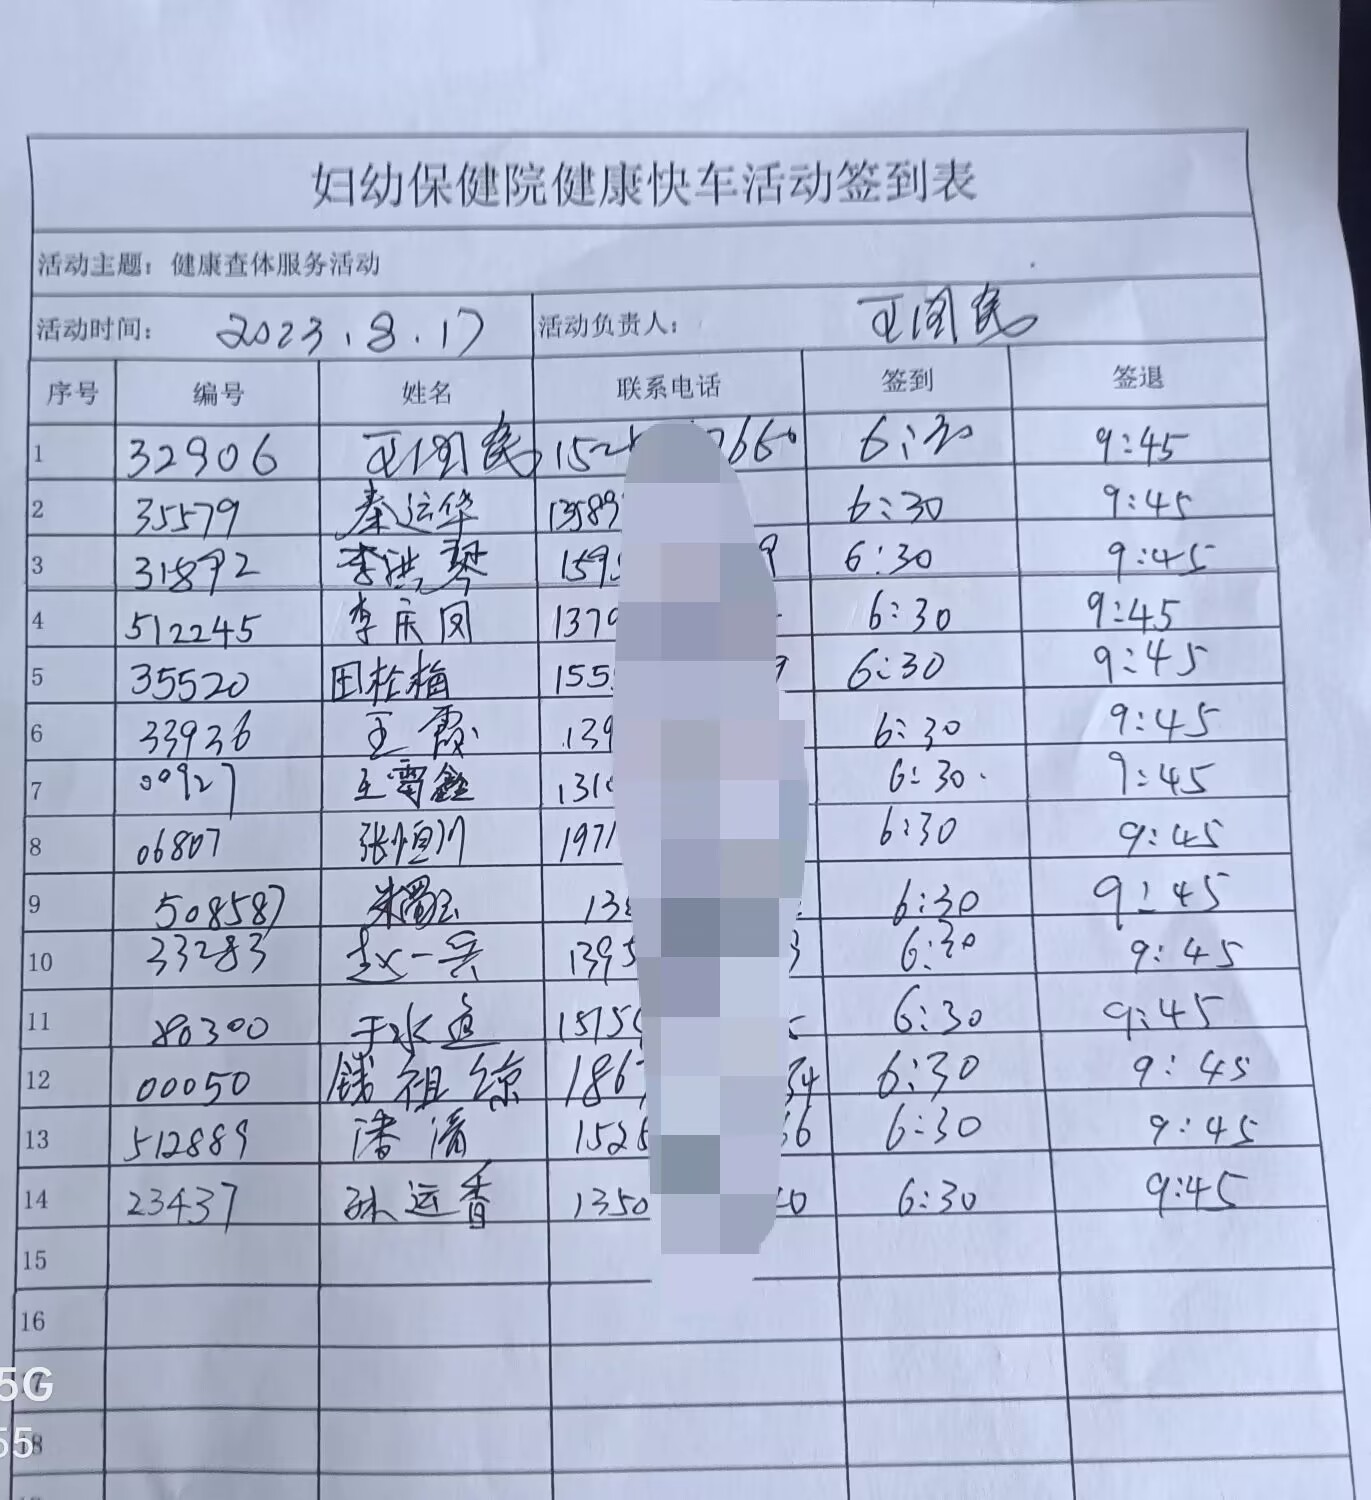 妇幼保健院健康快车活动签到表
活动主题：健康查体服务活动
活动时间： 2023.8.17 活动负责人： 王国民
序号 编号 姓名 联系电话 签到 签退
1 32906 王国民 152 7660 6:30 9:45
2 35579 秦运华 13589 6:30 9:45
3 31892 李洪琴 159 9 6:30 9:45
4 512245 李庆凤 1379 6:30 9:45
5 35520 田栓梅 155 6:30 9:45
6 33936 王霞 139 6:30 9:45
7 00927 王雷鑫 131 6:30 9:45
8 06807 张恒川 1971 6:30 9:45
9 508587 13 6:30 9:45
10 33283 赵一兵 1395 3 6:30 9:45
11 80300 于水 1515 6:30 9:45
12 00050 钱祖琼 186 34 6:30 9:45
13 512889 潘 152 66 6:30 9:45
14 23437 孙远香 1350 0 6:30 9:45
15
16
5G
55 18